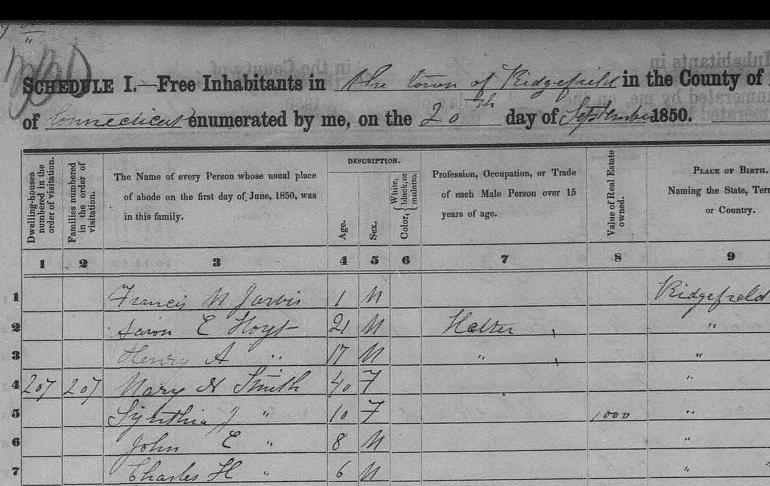 SCHEDULE I.—Free Inhabitants in the town of Ridgefield in the County of
of Connecticut enumerated by me, on the 20th day of September 1850.
Dwelling-houses numbered in the order of visitation.
Families numbered in the order of visitation.
The Name of every Person whose usual place of abode on the first day of June, 1850, was in this family.
DESCRIPTION.
Age.
Sex.
Color, { White, black, or mulatto.
Profession, Occupation, or Trade of each Male Person over 15 years of age.
Value of Real Estate owned.
PLACE OF BIRTH.
Naming the State,
or Country.
1 2 3 4 5 6 7 8 9
1 Francis M Jarvis 1 M Ridgefield
2 Aaron E Hoyt 21 M Hatter "
3 Henry A " 17 M " "
4 207 207 Mary N Smith 40 F "
5 Synthia J " 10 F 1000 "
6 John E " 8 M "
7 Charles H " 6 M "